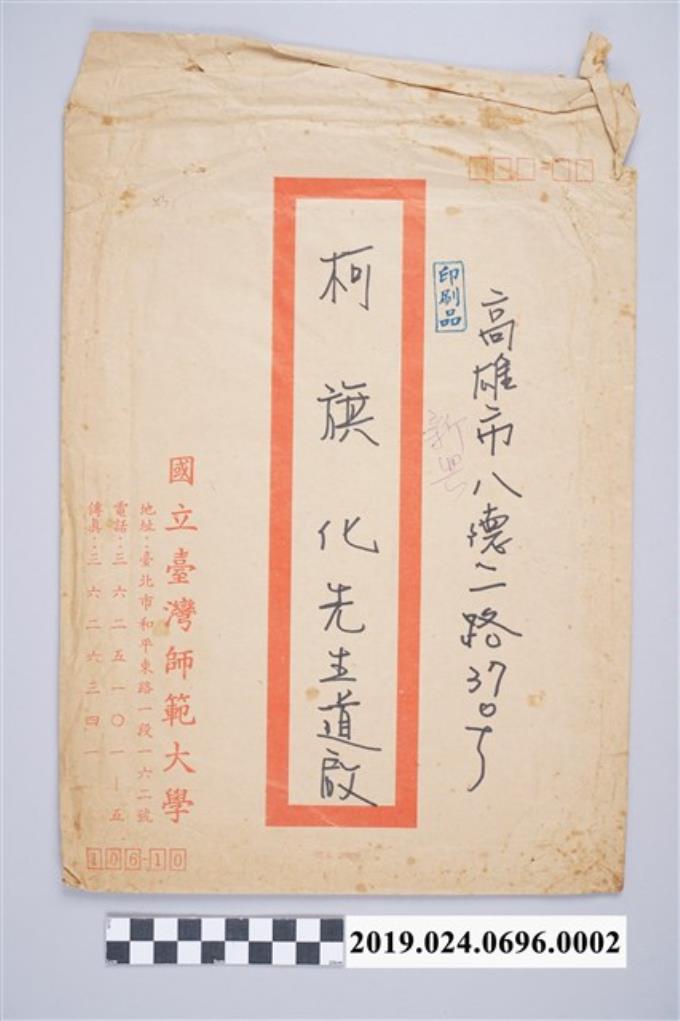 高雄市八德二路37號
印刷品
新興
柯旗化先生道啟
國立臺灣師範大學
地址：臺北市和平東路一段一六二號
電話：三六二五一〇一－五
傳真：三六二六三四一
106-10
2019.024.0696.0002